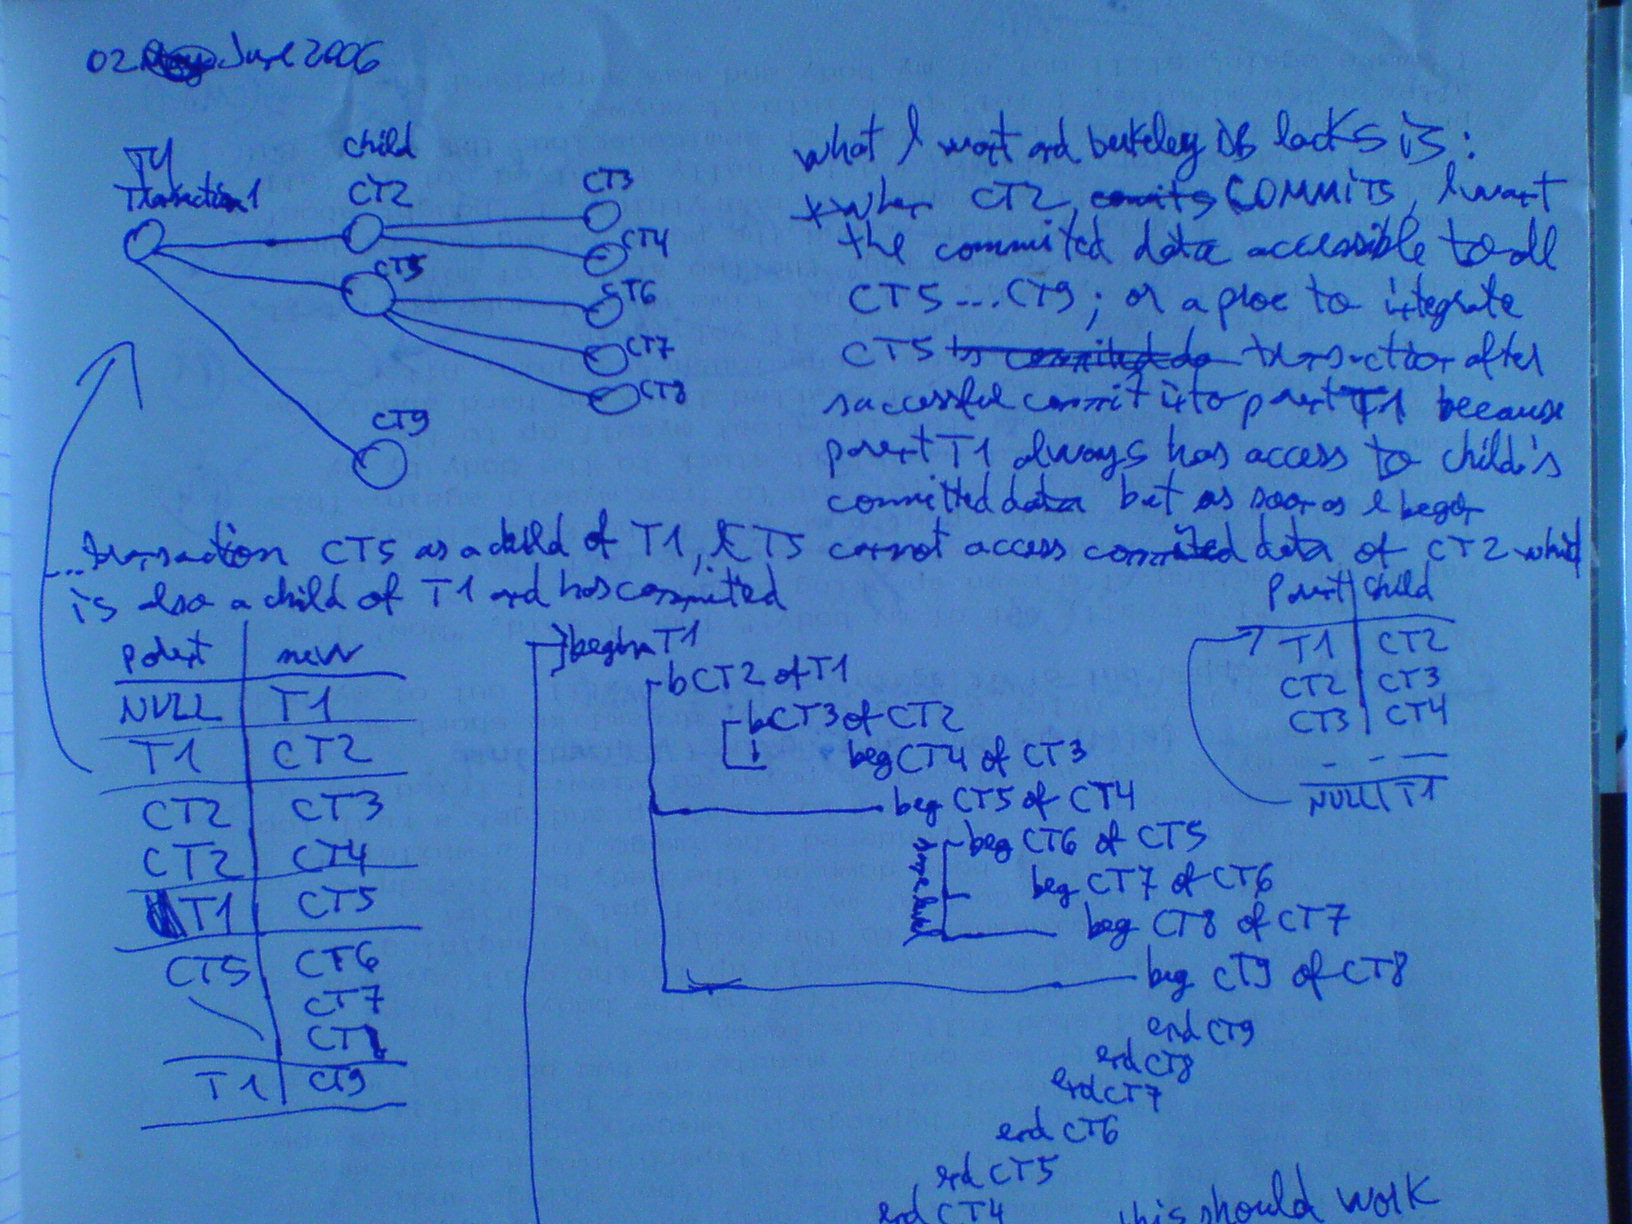 02 June 2006
T1
Transaction1
child
CT2
CT3
CT4
CT5
CT6
CT7
CT8
CT9
what I want and berkeley DB lacks is:
* when CT2, commits COMMITS, I want
the commited data accessible to all
CT5...CT9; or a place to integrate
CT5 transaction after
successful commit into parent T1 because
parent T1 always has access to child's
committed data but as soon as I begin
...transaction CT5 as a child of T1, CT5 cannot access committed data of CT2 which
is also a child of T1 and has committed
parent | new
NULL | T1
T1 | CT2
CT2 | CT3
CT2 | CT4
T1 | CT5
CT5 | CT6
CT7
T1 | CT9
begin T1
bCT2 of T1
bCT3 of CT2
beg CT4 of CT3
beg CT5 of CT4
beg CT6 of CT5
beg CT7 of CT6
beg CT8 of CT7
beg CT9 of CT8
end CT9
end CT8
end CT7
end CT6
end CT5
end CT4
Parent | Child
T1 | CT2
CT2 | CT3
CT3 | CT4
- - —
NULL | T1
this should work